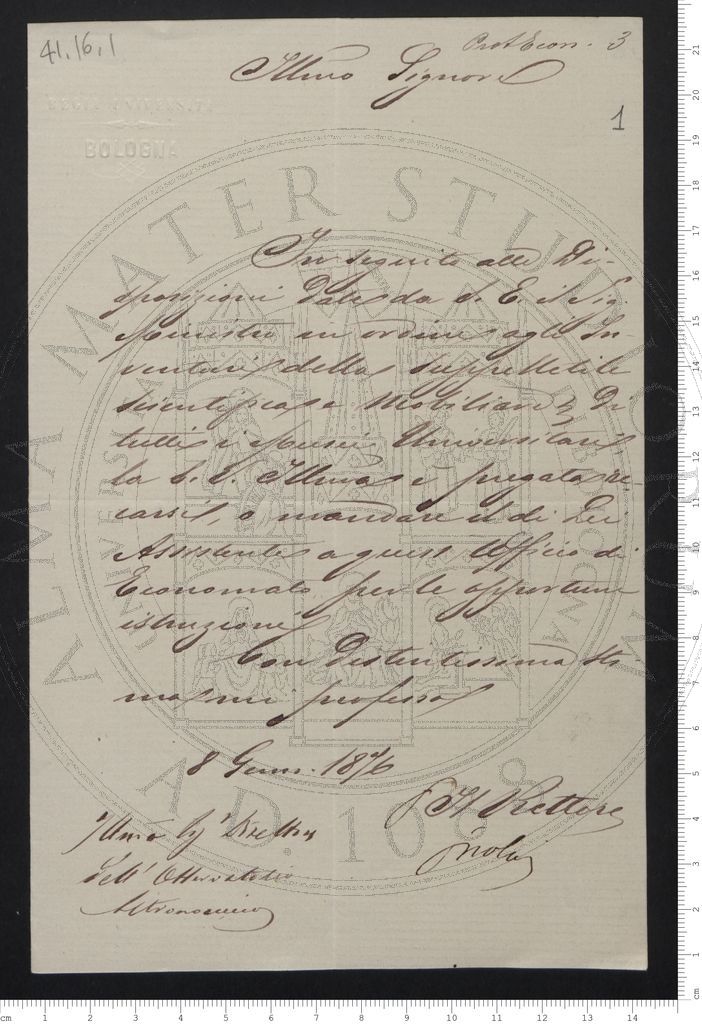 41.16.1
Prot Econ. 3
Illmo Signore
1
REGIA UNIVERSITÀ
BOLOGNA
In seguito alle Di-
sposizioni date da S. E. il Sig
Ministro in ordine agli In
ventari della suppellettile
scientifica e Mobiliare di
tutti i Musei Universitari
la S. V. Illma è pregata re-
carsi, o mandare il di Lei
Assistente a quest'Ufficio di
Economato per le opportune
istruzioni
Con distintissima sti-
ma mi professo
8 Genn. 1876
Il Rettore
Illmo Sig Direttore
dell'Osservatorio
Astronomico
ALMA MATER STUDIORUM
A.D. 1088